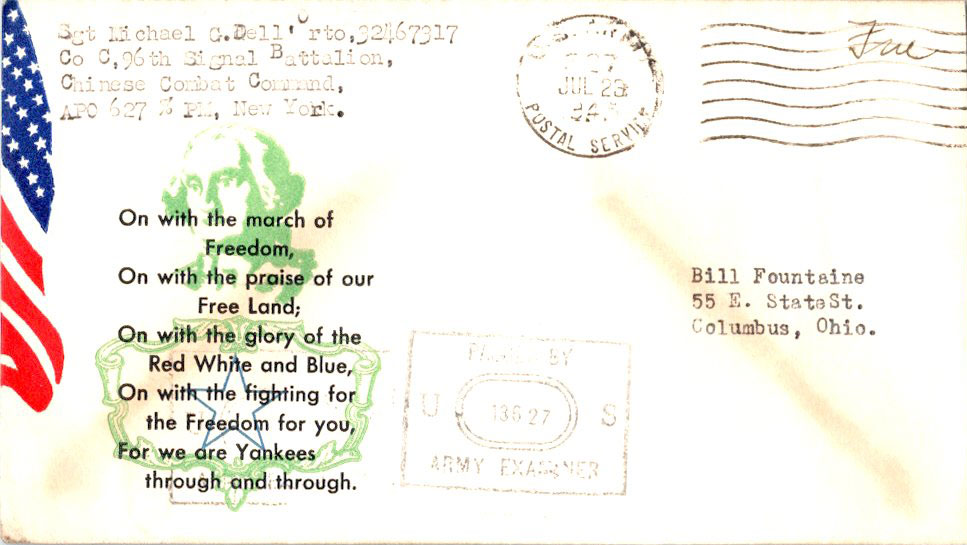 Sgt Michael G.Dell'Orto,32467317
Co C,96th Signal Battalion,
Chinese Combat Command,
APO 627 % PM, New York.
JUL 23
POSTAL SERVICE
Free
On with the march of
Freedom,
On with the praise of our
Free Land;
On with the glory of the
Red White and Blue,
On with the fighting for
the Freedom for you,
For we are Yankees
through and through.
Bill Fountaine
55 E. StateSt.
Columbus, Ohio.
PASSED BY
U 13627 S
ARMY EXAMINER